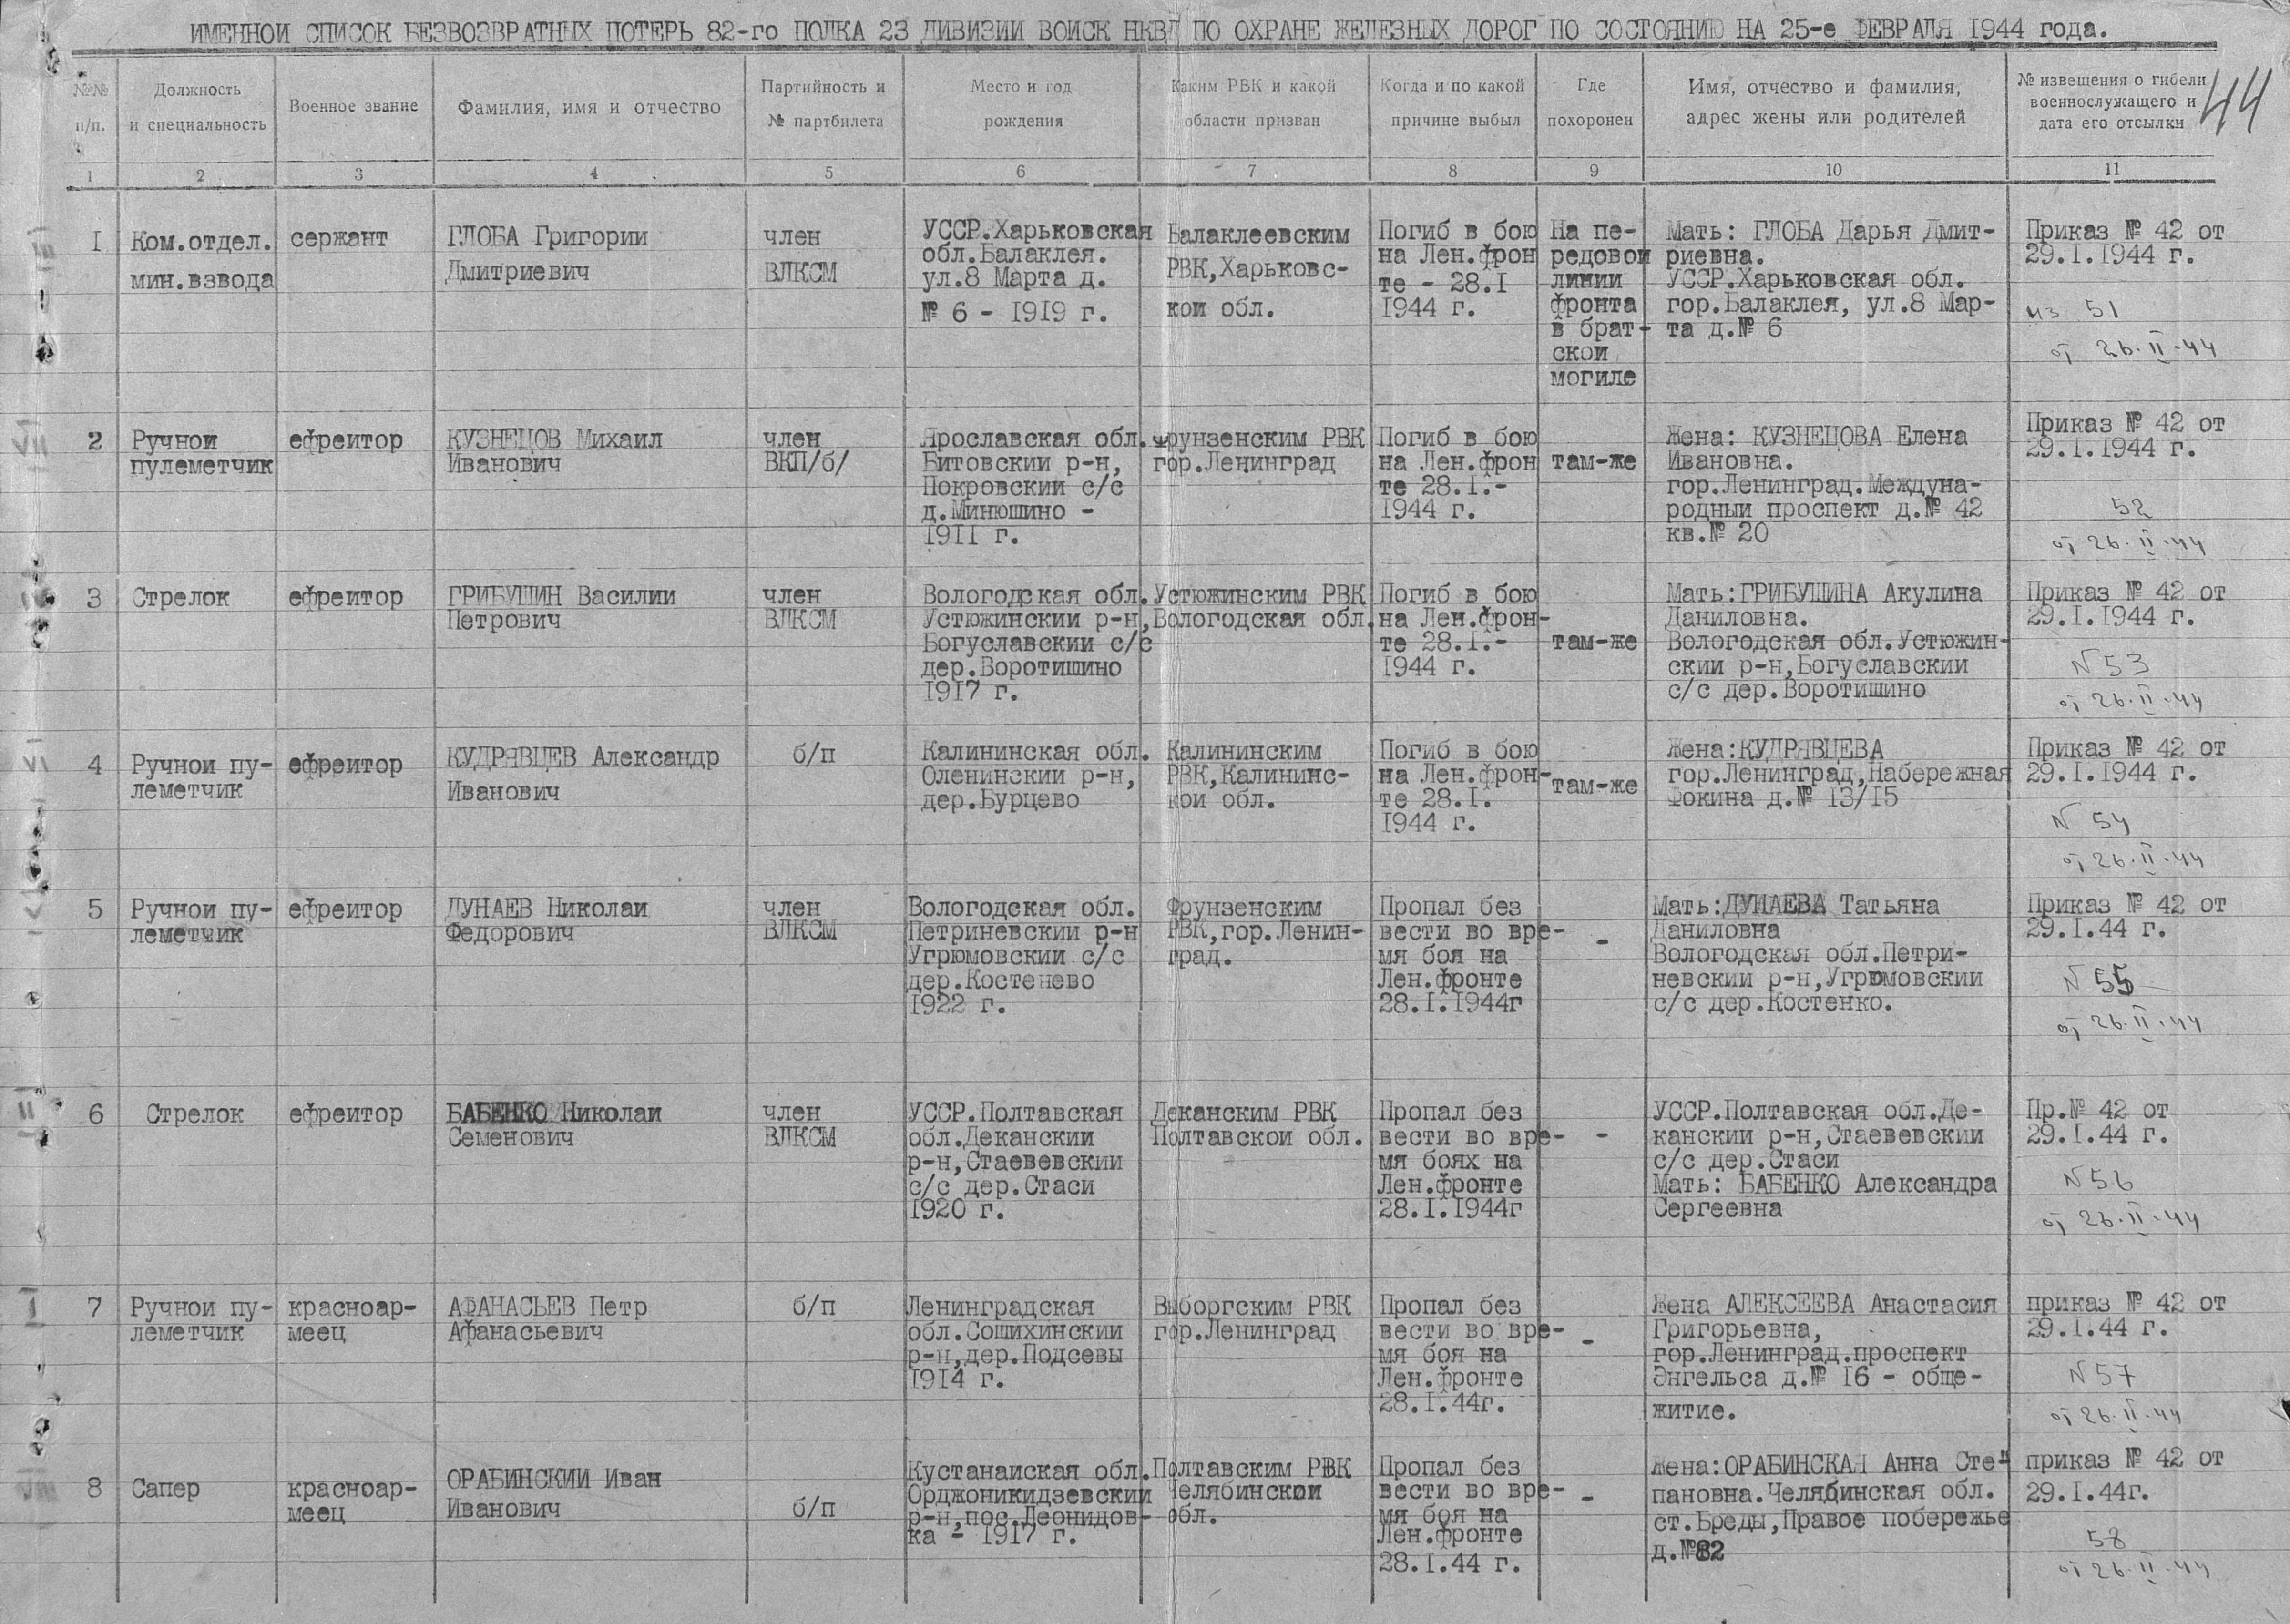 ИМЕННОИ СПИСОК БЕЗВОЗВРАТНЫХ ПОТЕРЬ 82-го ПОЛКА 23 ДИВИЗИИ ВОИСК НКВД ПО ОХРАНЕ ЖЕЛЕЗНЫХ ДОРОГ ПО СОСТОЯНИЮ НА 25-е ФЕВРАЛЯ 1944 года.
44
№№ п/п.
Должность и специальность
Военное звание
Фамилия, имя и отчество
Партийность и № партбилета
Место и год рождения
Каким РВК и какой области призван
Когда и по какой причине выбыл
Где похоронен
Имя, отчество и фамилия, адрес жены или родителей
№ извещения о гибели военнослужащего и дата его отсылки
1 2 3 4 5 6 7 8 9 10 11
I
Ком.отдел.
мин.взвода
сержант
ГЛОБА Григории
Дмитриевич
член
ВЛКСМ
УССР.Харьковская
обл.Балаклея.
ул.8 Марта д.
№ 6 - 1919 г.
Балаклеевским
РВК,Харьковс-
кои обл.
Погиб в бою
на Лен.фрон
те - 28.I
1944 г.
На пе-
редовои
линии
фронта
в брат-
скои
могиле
Мать: ГЛОБА Дарья Дмит-
риевна.
УССР.Харьковская обл.
гор.Балаклея, ул.8 Мар-
та д.№ 6
Приказ № 42 от
29.I.1944 г.
из 51
от 26.II.44
2
Ручнои
пулеметчик
ефреитор
КУЗНЕЦОВ Михаил
Иванович
член
ВКП/б/
Ярославская обл.
Битовскии р-н,
Покровскии с/с
д.Минюшино -
1911 г.
Фрунзенским РВК
гор.Ленинград
Погиб в бою
на Лен.фрон
те 28.I.-
1944 г.
там-же
Жена: КУЗНЕЦОВА Елена
Ивановна.
гор.Ленинград.Междуна-
родныи проспект д.№ 42
кв.№ 20
Приказ № 42 от
29.I.1944 г.
52
от 26.II.44
3
Стрелок
ефреитор
ГРИБУШИН Василии
Петрович
член
ВЛКСМ
Вологодская обл.
Устюжинскии р-н,
Богуславскии с/с
дер.Воротишино
1917 г.
Устюжинским РВК
Вологодская обл.
Погиб в бою
на Лен.фрон-
те 28.I.-
1944 г.
там-же
Мать:ГРИБУШИНА Акулина
Даниловна.
Вологодская обл.Устюжин-
скии р-н,Богуславскии
с/с дер.Воротишино
Приказ № 42 от
29.I.1944 г.
N 53
от 26.II.44
4
Ручнои пу-
леметчик
ефреитор
КУДРЯВЦЕВ Александр
Иванович
б/п
Калининская обл.
Оленинскии р-н,
дер.Бурцево
Калининским
РВК,Калининс-
кои обл.
Погиб в бою
на Лен.фрон-
те 28.I.
1944 г.
там-же
Жена:КУДРЯВЦЕВА
гор.Ленинград,Набережная
Фокина д.№ 13/15
Приказ № 42 от
29.I.1944 г.
N 54
от 26.II.44
5
Ручнои пу-
леметчик
ефреитор
ДУНАЕВ Николаи
Федорович
член
ВЛКСМ
Вологодская обл.
Петриневскии р-н
Угрюмовскии с/с
дер.Костенево
1922 г.
Фрунзенским
РВК,гор.Ленин-
град.
Пропал без
вести во вре-
мя боя на
Лен.фронте
28.I.1944г
-
Мать:ДУНАЕВА Татьяна
Даниловна
Вологодская обл.Петри-
невскии р-н,Угрюмовскии
с/с дер.Костенко.
Приказ № 42 от
29.I.44 г.
N 55
от 26.II.44
6
Стрелок
ефреитор
БАБЕНКО Николаи
Семенович
член
ВЛКСМ
УССР.Полтавская
обл.Деканскии
р-н,Стаевевскии
с/с дер.Стаси
1920 г.
Деканским РВК
Полтавскои обл.
Пропал без
вести во вре-
мя боях на
Лен.фронте
28.I.1944г
-
УССР.Полтавская обл.Де-
канскии р-н,Стаевевскии
с/с дер.Стаси
Мать: БАБЕНКО Александра
Сергеевна
Пр.№ 42 от
29.I.44 г.
N 56
от 26.II.44
7
Ручнои пу-
леметчик
красноар-
меец
АФАНАСЬЕВ Петр
Афанасьевич
б/п
Ленинградская
обл.Сошихинскии
р-н,дер.Подсевы
1914 г.
Выборгским РВК
гор.Ленинград
Пропал без
вести во вре-
мя боя на
Лен.фронте
28.I.44г.
-
Жена АЛЕКСЕЕВА Анастасия
Григорьевна,
гор.Ленинград.проспект
Энгельса д.№ 16 - обще-
житие.
приказ № 42 от
29.I.44 г.
N 57
от 26.II.44
8
Сапер
красноар-
меец
ОРАБИНСКИИ Иван
Иванович
б/п
Кустанаиская обл.
Орджоникидзевскии
р-н,пос.Леонидов-
ка - 1917 г.
Полтавским РВК
Челябинскои
обл.
Пропал без
вести во вре-
мя боя на
Лен.фронте
28.I.44 г.
-
Жена:ОРАБИНСКАЯ Анна Сте-
пановна.Челябинская обл.
ст.Бреды,Правое побережье
д.№82
приказ № 42 от
29.I.44г.
58
от 26.II.44